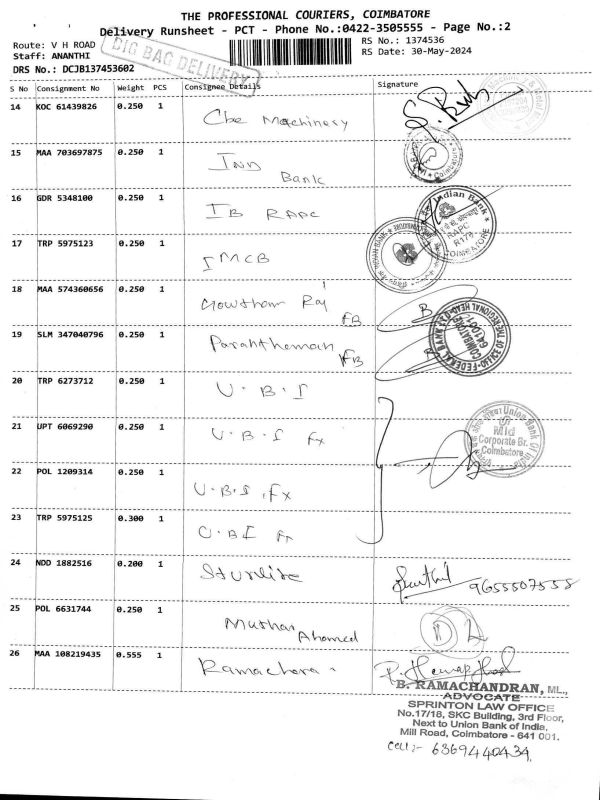 THE PROFESSIONAL COURIERS, COIMBATORE
Delivery Runsheet - PCT - Phone No.:0422-3505555 - Page No.:2
Route: V H ROAD
Staff: ANANTHI
DRS No.: DCJB137453602
BIG BAG DELIVERY
RS No.: 1374536
RS Date: 30-May-2024
S No Consignment No Weight PCS Consignee Details Signature
14 KOC 61439826 0.250 1 Cbe Machinery
15 MAA 703697875 0.250 1 Ind Bank
16 GDR 5348100 0.250 1 IB RAPC
Indian Bank
RAPC
COIMBATORE
17 TRP 5975123 0.250 1 IMCB
INDIAN BANK
18 MAA 574360656 0.250 1 Gowtham Raj FB
19 SLM 347040796 0.250 1 FB
FEDERAL BANK LTD. OFFICE OF THE REGIONAL HEAD
COIMBATORE
641001
20 TRP 6273712 0.250 1 U.B.I
21 UPT 6069290 0.250 1 U.B.I Fx
Union Bank of India
Mid
Corporate Br.
Coimbatore
22 POL 1209314 0.250 1 U.B.I, Fx
23 TRP 5975125 0.300 1 U.B.I Fx
24 NDD 1882516 0.200 1 Sturlite 9655507558
25 POL 6631744 0.250 1 Ahamed
26 MAA 108219435 0.555 1
B. RAMACHANDRAN, ML.,
ADVOCATE
SPRINTON LAW OFFICE
No.17/18, SKC Building, 3rd Floor,
Next to Union Bank of India,
Mill Road, Coimbatore - 641 001.
Cell:- 6369440434